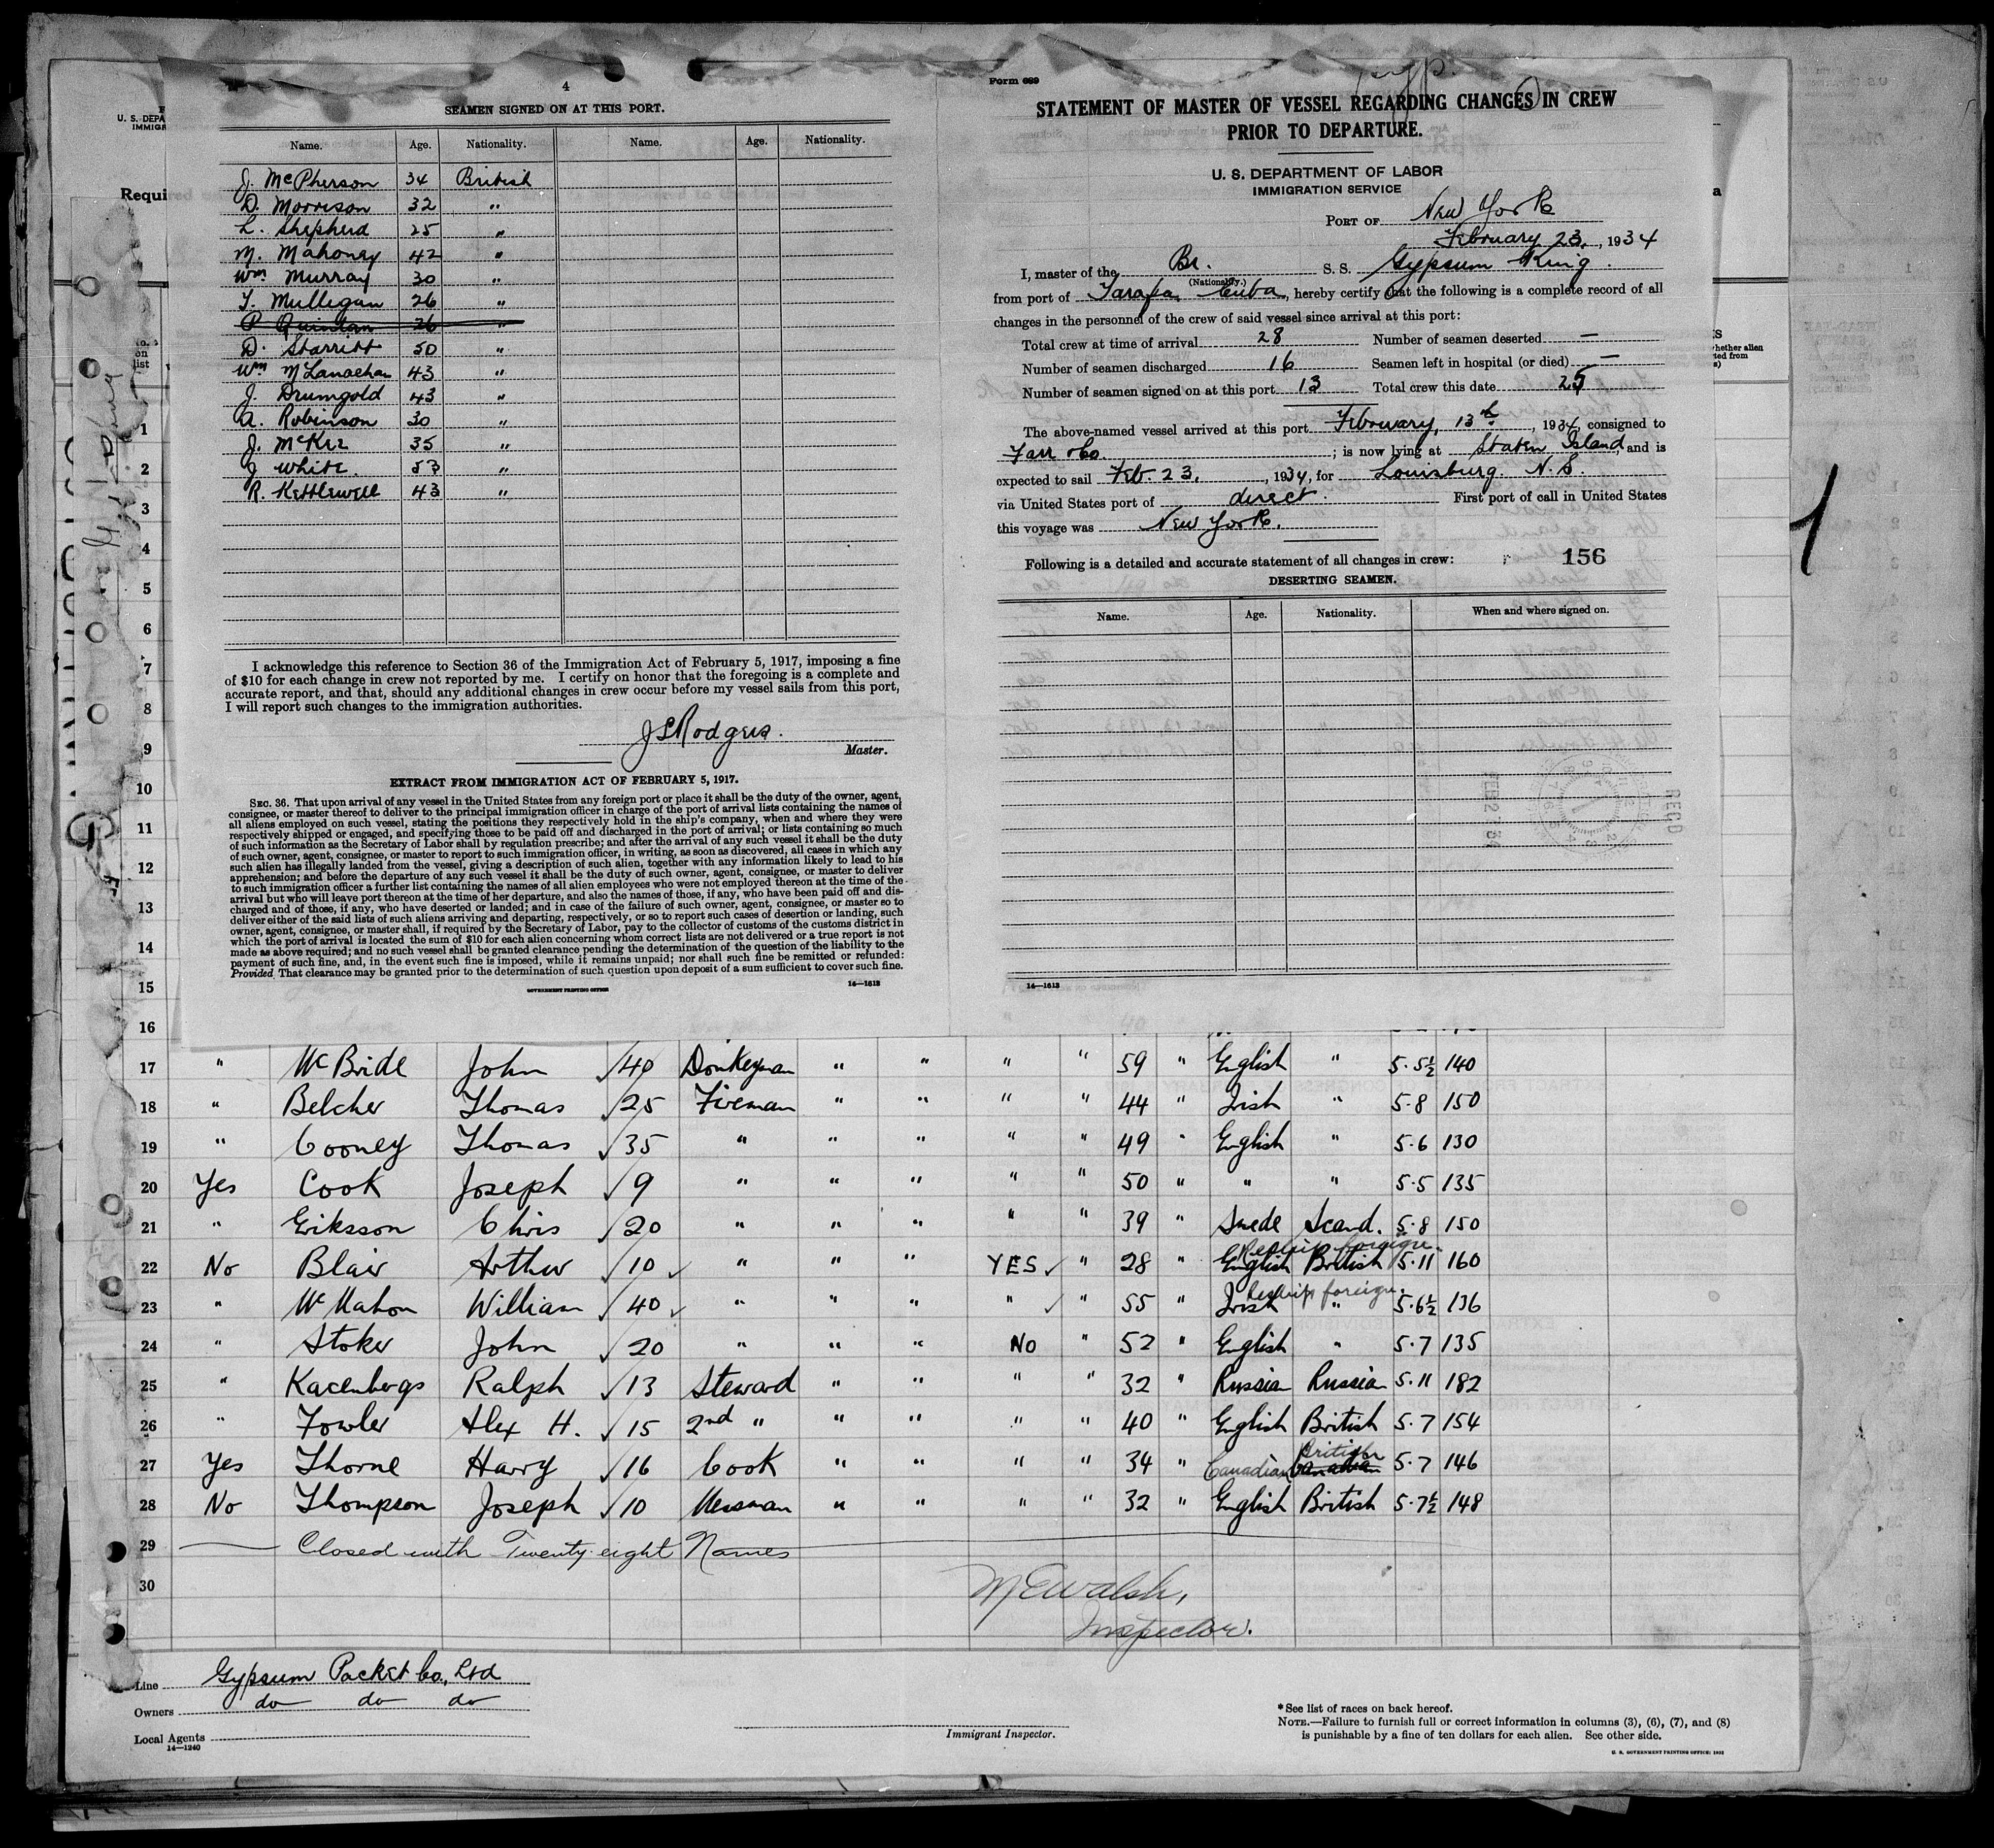 4
SEAMEN SIGNED ON AT THIS PORT.
Name. Age. Nationality. Name. Age. Nationality.
J. McPherson 34 British
D. Morrison 32 "
L. Shepherd 25 "
M. Mahoney 42 "
Wm Murray 30 "
T. Mulligan 26 "
P Quinlan 26 "
D. Starritt 50 "
Wm McLanachan 43 "
J. Drumgold 43 "
A. Robinson 30 "
J. McKee 35 "
J White. 53 "
R. Kettlewell 43 "
I acknowledge this reference to Section 36 of the Immigration Act of February 5, 1917, imposing a fine
of $10 for each change in crew not reported by me. I certify on honor that the foregoing is a complete and
accurate report, and that, should any additional changes in crew occur before my vessel sails from this port,
I will report such changes to the immigration authorities.
Rodgers.
Master.
EXTRACT FROM IMMIGRATION ACT OF FEBRUARY 5, 1917.
SEC. 36. That upon arrival of any vessel in the United States from any foreign port or place it shall be the duty of the owner, agent,
consignee, or master thereof to deliver to the principal immigration officer in charge of the port of arrival lists containing the names of
all aliens employed on such vessel, stating the positions they respectively hold in the ship's company, when and where they were
respectively shipped or engaged, and specifying those to be paid off and discharged in the port of arrival; or lists containing so much
of such information as the Secretary of Labor shall by regulation prescribe; and after the arrival of any such vessel it shall be the duty
of such owner, agent, consignee, or master to report to such immigration officer, in writing, as soon as discovered, all cases in which any
such alien has illegally landed from the vessel, giving a description of such alien, together with any information likely to lead to his
apprehension; and before the departure of any such vessel it shall be the duty of such owner, agent, consignee, or master to deliver
to such immigration officer a further list containing the names of all alien employees who were not employed thereon at the time of the
arrival but who will leave port thereon at the time of her departure, and also the names of those, if any, who have been paid off and dis-
charged and of those, if any, who have deserted or landed; and in case of the failure of such owner, agent, consignee, or master so to
deliver either of the said lists of such aliens arriving and departing, respectively, or so to report such cases of desertion or landing, such
owner, agent, consignee, or master shall, if required by the Secretary of Labor, pay to the collector of customs of the customs district in
which the port of arrival is located the sum of $10 for each alien concerning whom correct lists are not delivered or a true report is not
made as above required; and no such vessel shall be granted clearance pending the determination of the question of the liability to the
payment of such fine, and, in the event such fine is imposed, while it remains unpaid; nor shall such fine be remitted or refunded:
Provided, That clearance may be granted prior to the determination of such question upon deposit of a sum sufficient to cover such fine.
GOVERNMENT PRINTING OFFICE 14—1613
Form 689
STATEMENT OF MASTER OF VESSEL REGARDING CHANGES IN CREW
PRIOR TO DEPARTURE.
U. S. DEPARTMENT OF LABOR
IMMIGRATION SERVICE
PORT OF New York
February 23, 1934
I, master of the Br. S. S. Gypsum King.
(Nationality.)
from port of Tarafa, Cuba, hereby certify that the following is a complete record of all
changes in the personnel of the crew of said vessel since arrival at this port:
Total crew at time of arrival 28 Number of seamen deserted —
Number of seamen discharged 16 Seamen left in hospital (or died) —
Number of seamen signed on at this port 13 Total crew this date 25
The above-named vessel arrived at this port February, 13th, 1934, consigned to
Farr &Co. ; is now lying at Staten Island, and is
expected to sail Feb. 23, 1934, for Louisburg. N.S.
via United States port of direct. First port of call in United States
this voyage was New York.
Following is a detailed and accurate statement of all changes in crew: 156
DESERTING SEAMEN.
Name. Age. Nationality. When and where signed on.
FEB 2 34
RECD
14—1613
U. S. DEPA
IMMIGR
Requi
on
list
hether alien
1
2
3
4
5
6
7
8
9
10
11
12
13
14
15
16
17 " McBride John 40 Donkeyman " " " " 59 " English " 5·5½ 140
18 " Belcher Thomas 25 Fireman " " " " 44 " Irish " 5·8 150
19 " Cooney Thomas 35 " " " " " 49 " English " 5·6 130
20 Yes Cook Joseph 9 " " " " " 50 " " " 5·5 135
21 " Eriksson Chris 20 " " " " " 39 " Swede Scand. 5·8 150
Reship foreign
22 No Blair Arthur 10 " " " YES " 28 " English British 5·11 160
Reship foreign.
23 " McMahon William 40 " " " " " 55 " Irish " 5·6½ 136
24 " Stoker John 20 " " " No " 52 " English " 5·7 135
25 " Kacenbergs Ralph 13 Steward " " " " 32 " Russian Russian 5·11 182
26 " Fowler Alex H. 15 2nd " " " " " 40 " English British 5·7 154
27 Yes Thorne Harry 16 Cook " " " " 34 " Canadian British Canadian 5·7 146
28 No Thompson Joseph 10 Messman " " " " 32 " English British 5·7½ 148
29 Closed with Twenty eight Names
30
M E Walsh,
Inspector.
Line Gypsum Packet Co., Ltd
Owners do do do
Local Agents
14—1240
Immigrant Inspector.
* See list of races on back hereof.
NOTE.—Failure to furnish full or correct information in columns (3), (6), (7), and (8)
is punishable by a fine of ten dollars for each alien. See other side.
U. S. GOVERNMENT PRINTING OFFICE: 1932